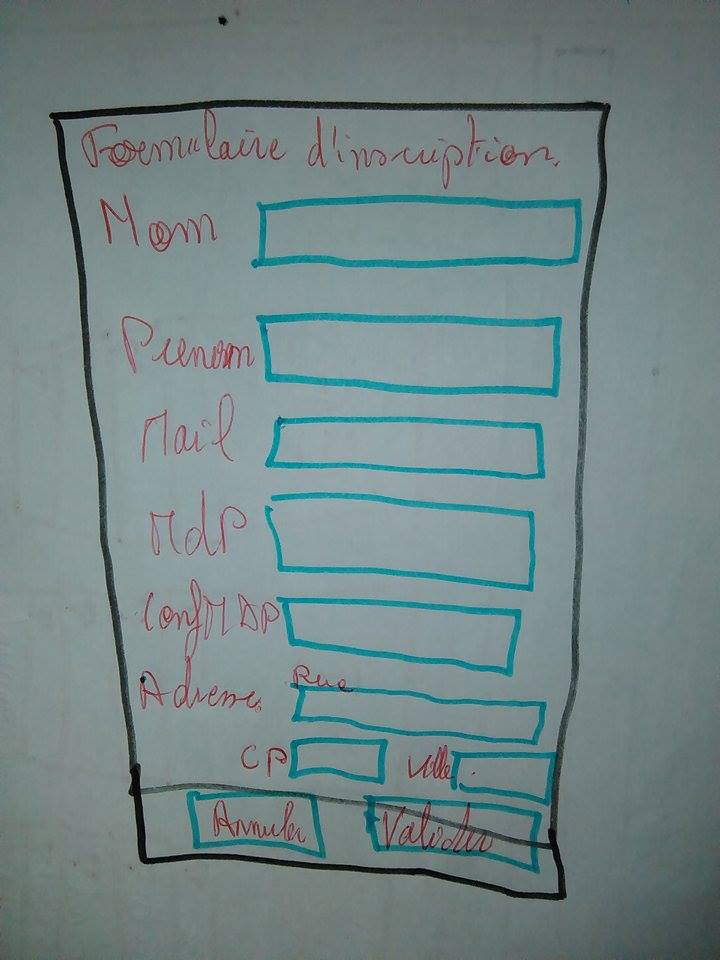 Formulaire d'inscription.
Nom
Prenom
Mail
MdP
Conf MDP
Rue
Adresse
CP Ville
Annuler Valider